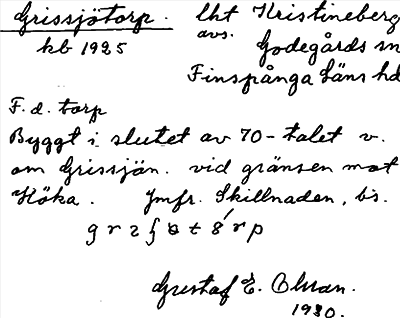 Grissjötorp. lht Kristineberg
kb 1925 avs. Godegårds sn
Finspånga läns hd
F. d. torp
Byggt i slutet av 70-talet v.
om Grissjön. vid gränsen mot
Höka. Jmfr. Skillnaden, bs.
Gustaf E. Olsson.
1930.